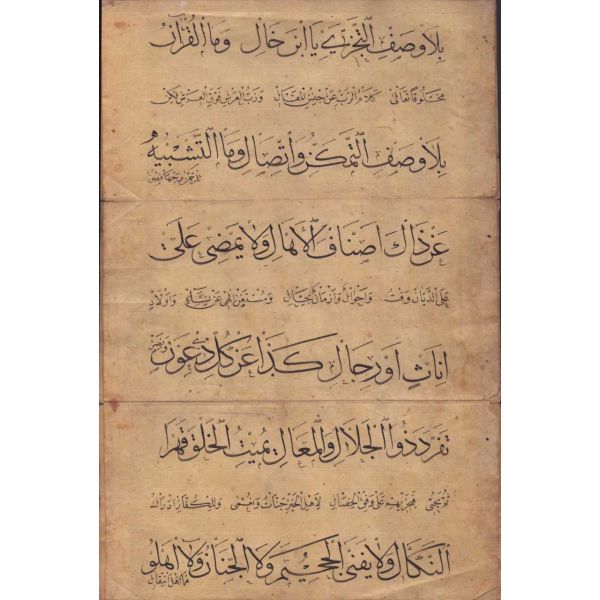 بلا وصف التجزي يا ابن خال وما القرآن
مخلوقا تعالى كلام الرب عن جنس المقال ورب العرش فوق العرش لكن
بلا وصف التمكن واتصال وما التشبيه
للرحمن وجها فصن
عن ذاك اصناف الأهال ولا يمضي على
على الديان وقت واحوال وازمان بحال ومستغن الهي عن نساء واولاد
اناث او رجال كذا عن كل ذي عون ونصر
تفرد ذو الجلال والمعال يميت الخلق قهرا
ثم يحيي فيجزيهم على وفق الخصال لاهل الخير جنات ونعمى وللكفار ادراك
النكال ولا يفنى الجحيم ولا الجنان ولا اهلو
هما اهل انتقال